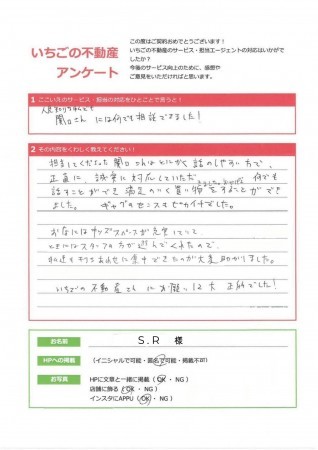 いちごの不動産
アンケート
この度はご契約おめでとうございます！
いちごの不動産のサービス・担当エージェントの対応はいかがでしたか？
今後のサービス向上のために、感想やご意見をいただければと思います。
1 ここいえのサービス・担当の対応をひとことで言うと！
人見知りちゃんでも
関口さんには何でも相談できました！
2 その内容をくわしく教えてください！
担当してくださった関口さんはとにかく話のしやすい方で、
正直に、誠実に対応していただき 何でも
話すことができ 満足のいく買い物をすることができ
ました。 ギャグのセンスもセカイチでした。
お店にはキッズスペースが充実していて
ときにはスタッフの方が遊んでくれたので、
大変助かりました。
いちごの不動産さんにお願いは大正解でした！
お名前 S.R 様
HPへの掲載 （イニシャルで可能・匿名で可能・掲載不可）
お写真 HPに文章と一緒に掲載（ OK ・ NG ）
店舗に飾る（ OK ・ NG ）
インスタにAPPU（ OK ・ NG ）